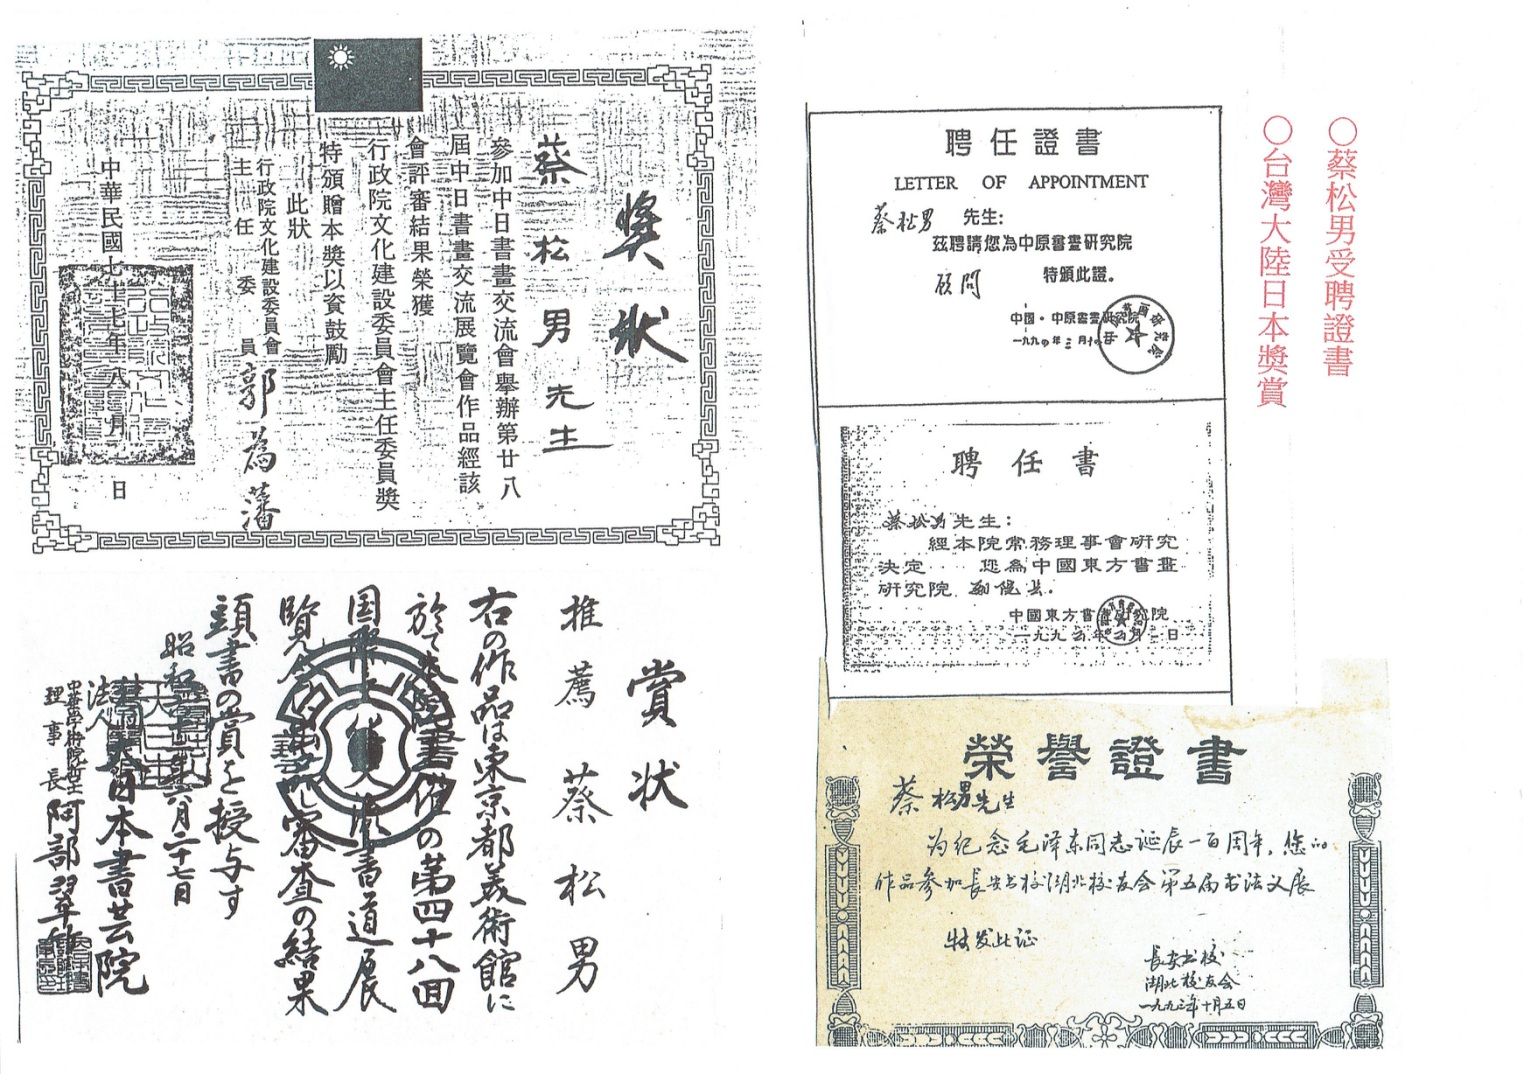 ○蔡松男受聘證書
○台灣大陸日本獎賞
聘任證書
LETTER OF APPOINTMENT
蔡松男 先生:
茲聘請您為中原書畫研究院
顧問 特頒此證。
中國·中原書畫研究院
一九九 年三月十
聘任書
蔡松男先生:
經本院常務理事會研究
決定 您為中國東方書畫
研究院
中國東方書畫研究院
一九九 年 月一日
榮譽證書
蔡松男先生
为纪念毛泽东同志诞辰一百周年,您的
作品参加长安书校湖北校友会第五届书法义展
特发此证
長安书校
湖北校友会
一九九三年十月五日
獎狀
蔡松男先生
參加中日書畫交流會舉辦第廿八
屆中日書畫交流展覽會作品經該
會評審結果榮獲
行政院文化建設委員會主任委員獎
特頒贈本獎以資鼓勵
此狀
行政院文化建設委員會
主任委員 郭為藩
中華民國七十七年八月 日
賞状
推薦 蔡松男
右の作品は東京都美術館に
於て本院主催の第四十八回
国際 書道展
覧会 審査の結果
頭書の賞を授与す
昭和 年六月二十七日
法人 日本書芸院
中華学術院哲士
理事長 阿部翠竹